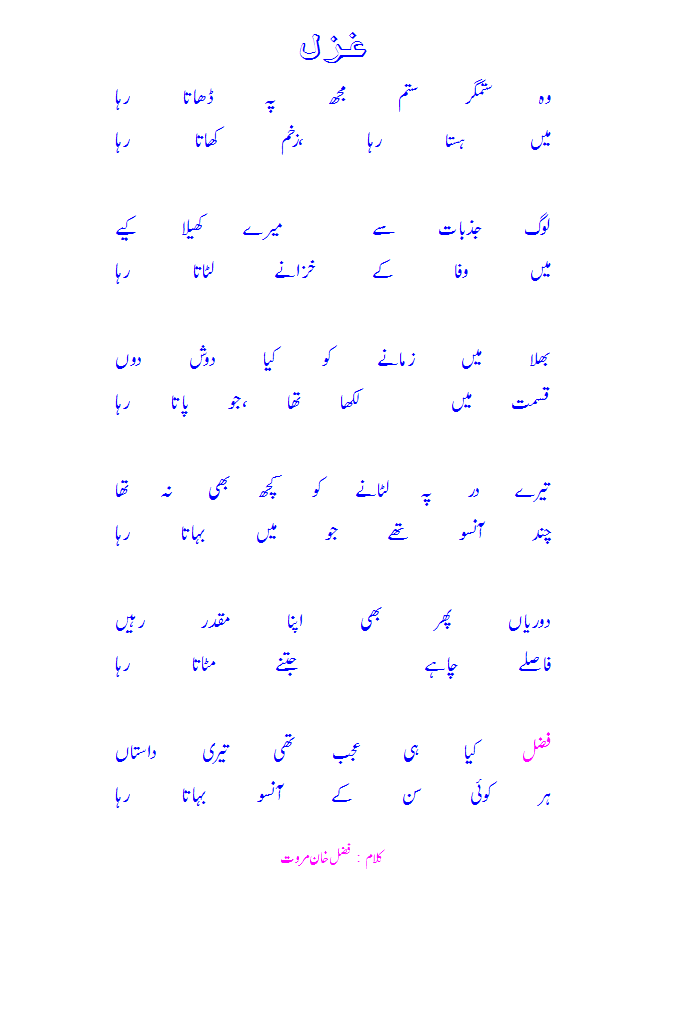 غزل
وہ ستمگر ستم مجھ پہ ڈھاتا رہا
میں ہستا رہا ،زخم کھاتا رہا
لوگ جذبات سے میرے کھیلا کیے
میں وفا کے خزانے لٹاتا رہا
بھلا میں زمانے کو کیا دوش دوں
قسمت میں لکھا تھا ،جو پاتا رہا
تیرے در پہ لٹانے کو کچھ بھی نہ تھا
چند آنسو تھے جو میں بہاتا رہا
دوریاں پھر بھی اپنا مقدر رہیں
فاصلے چاہے جتنے مٹاتا رہا
فضل کیا ہی عجب تھی تیری داستاں
ہر کوئی سن کے آنسو بہاتا رہا
کلام : فضل خان مروت